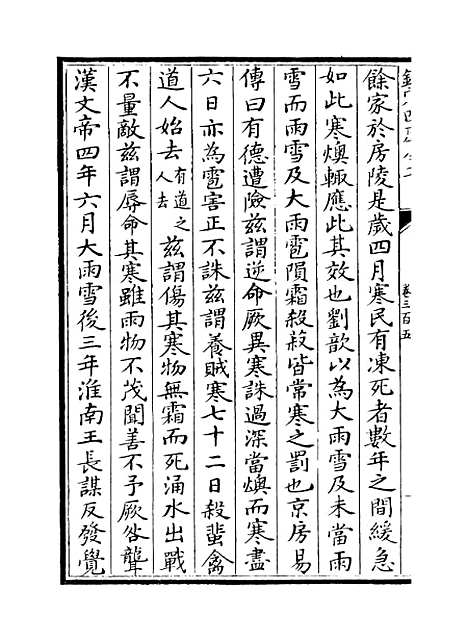 卷三百五
餘家於房陵是歲四月寒民有凍死者數年之間緩急
如此寒燠輒應此其效也劉歆以為大雨雪及未當雨
雪而雨雪及大雨雹隕霜殺菽皆常寒之罰也京房易
傳曰有德遭險兹謂逆命厥異寒誅過深當燠而寒盡
六日亦為雹害正不誅兹謂養賊寒七十二日殺蜚禽
道人始去有道之人去兹謂傷其寒物無霜而死涌水出戰
不量敵兹謂辱命其寒雖雨物不茂聞善不予厥咎聾
漢文帝四年六月大雨雪後三年淮南王長謀反發覺